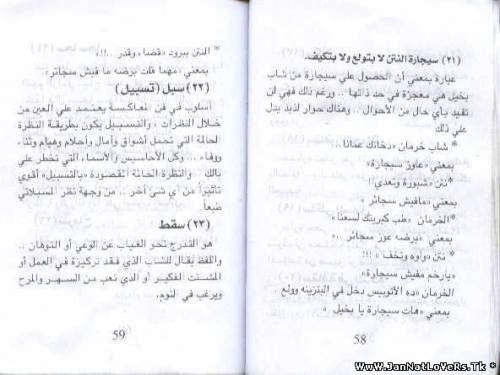 (٢١) سيجارة النتن لا بتولع ولا بتكيف.
عبارة بمعني أن الحصول علي سيجارة من شاب
بخيل هي معجزة في حد ذاتها .. ورغم ذلك فهي لن
تفيد بأي حال من الأحوال.. وهناك حوار لذيذ يدل
علي ذلك
* شاب خرمان «دخانك عمانا..
بمعني «عاوز سيجارة»
* نتن «شبورة وتعدي!!
بمعني «مافيش سجاير»
* الخرمان «طب كبريتك لسعنا»
بمعني «برضه عوز سجائر ..»
* نتن «راوه وتخف» !!
«يارحم مفيش سيجارة»
الخرمان «ده الأتوبيس دخل في البنزينه وولع .
بمعني «هات سيجارة يا بخيل»
58
* النتن ببرود «قضاء وقدر ..!!»
بمعني «مهما قلت برضه ما فيش سجائر»
(٢٢) سبل (تسبيل)
أسلوب في فن المعاكسة يعتمد علي العين من
خلال النظرات ، والتسبيل يكون بطريقة النظرة
الحالمة التي تحمل أشواق وآمال وأحلام وهيام وثناء
ووفاء ... وكل الأحاسيس والأسماء التي تخطر علي
بالك .. والنظرة الحالمة المقصودة «بالتسبيل» أقوي
تأثيراً من أي شئ آخر .. من وجهة نظر المسبلاتي
طبعاً.
(٢٣) سقط
هو التدرج نحو الغياب عن الوعي أو التوهان ..
واللفظ يقال للشاب الذي فقد تركيزة في العمل أو
المشتت الفكير أو الذي تعب من السهر والمرح
ويرغب في النوم.
59
WwW.JanNatLoVeRs.Tk *